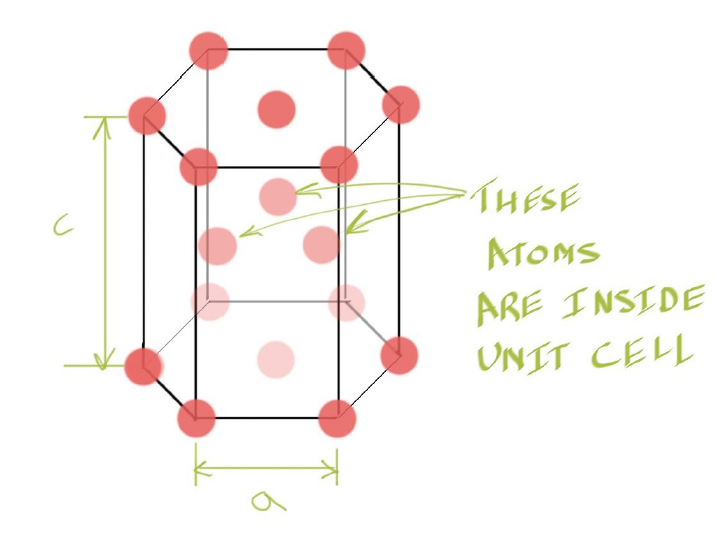 C
THESE
ATOMS
ARE INSIDE
UNIT CELL
a